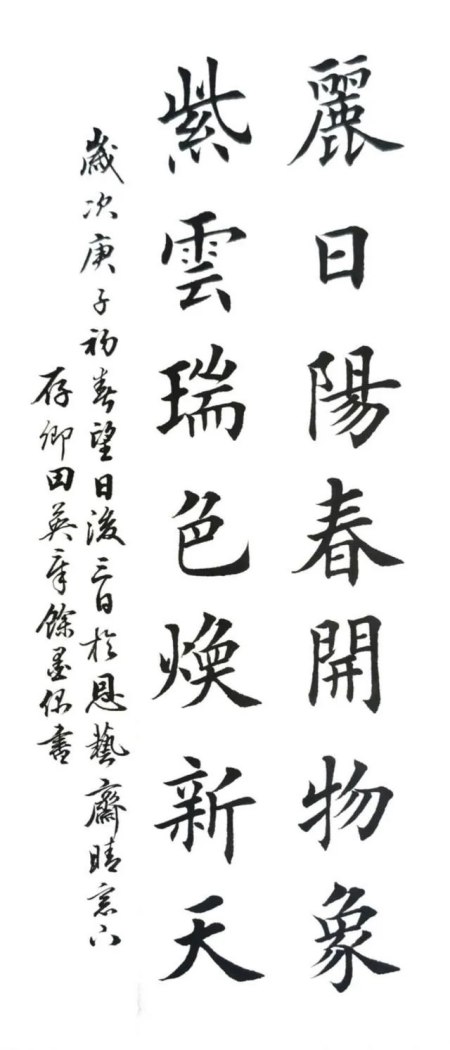 麗日陽春開物象
紫雲瑞色煥新天
歲次庚子初春望日後三日於恩藝齋晴窓下
存卿田英章餘墨保書